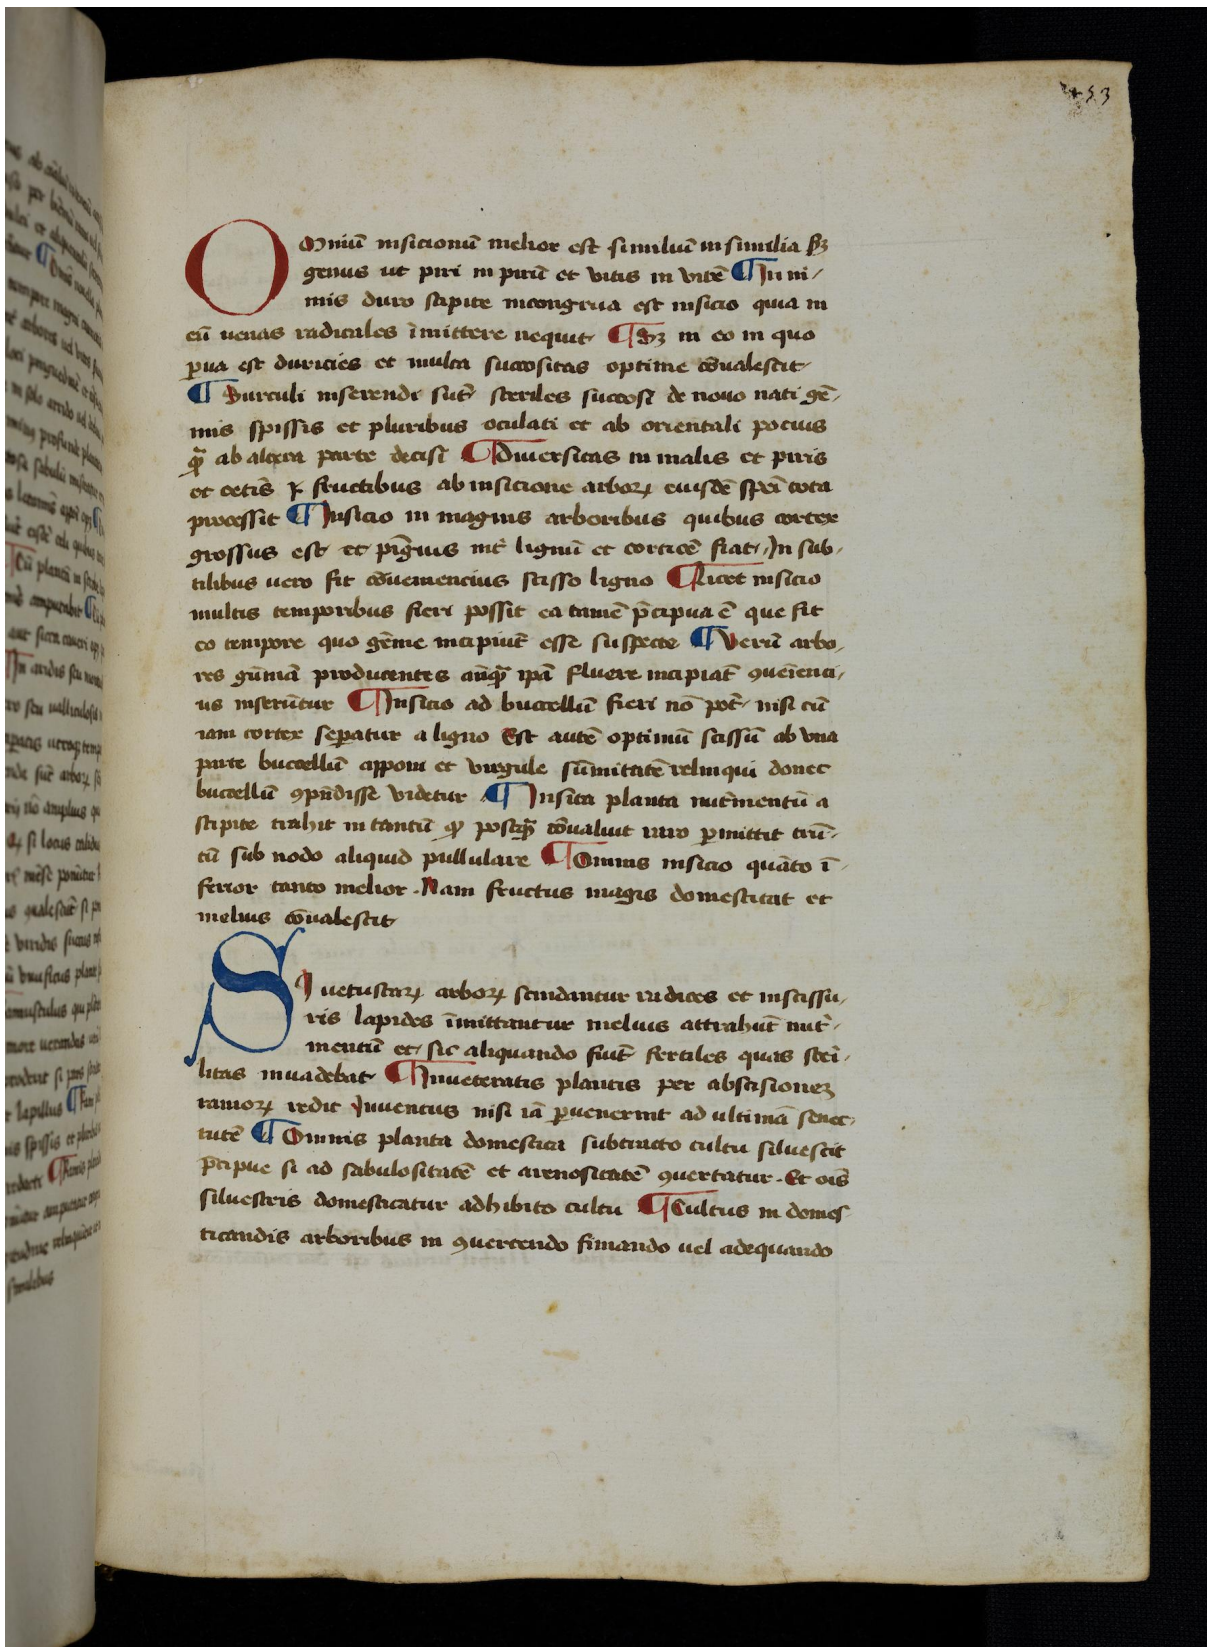 453
Omniū insicionū melior est similiū in similia scꝫ
genus ut piri in pirū et vitis in vitē ¶ In ni-
mis duro stipite incongrua est insicio quia in
eū uenas radicales īmittere nequit ¶ Sꝫ in eo in quo
ꝑua est duricies et multa succositas optime cōualescit
¶ Surculi inserendi sūt steriles succosi de nouo nati gē-
mis spissis et pluribus oculati et ab orientali pocius
qᷓ ab altera parte decisi ¶ Diuersitas in malis et piris
et cetīs fructibus ab insicione arboꝝ eiusdē spēi tota
processit ¶ Insicio in magnis arboribus quibus cortex
grossus est et pīguis int̄ lignū et corticē fiat, In sub-
tilibus uero fit cōueniencius scisso ligno ¶ Licet insicio
multis temporibus fieri possit ea tamē p̄cipua ē que fit
eo tempore quo gēme incipiūt esse suspecte ¶ Verū arbo-
res gūmā producentes an̄qᷓ ipā fluere incipiāt ꝯueīenci-
us inserūtur ¶ Insicio ad buccellū fieri nō pōt nisi cū
iam cortex sepatur a ligno Est autē optimū scissū ab vna
parte buccellū apponi et virgule sūmitatē relinqui donec
buccellū ꝯpn̄disse videtur ¶ Insita planta nut̄mentū a
stipite trahit in tantū ꝙ postqᷓ cōualuit raro ꝑmittit trū-
cū sub nodo aliquid pullulare ¶ Omnis insicio quāto ī-
ferior tanto melior. Nam fructus magis domesticat et
melius cōualescit
SI uetustaꝝ arboꝝ scindantur radices et in scissu-
ris lapides īmittantur melius attrahūt nut̄-
mentū et sic aliquando fiūt fertiles quas steī-
litas inuadebat ¶ Inueteratis plantis per abscisionez
ramoꝝ redit Iuuentus nisi iā ꝑuenerint ad ultimā senec-
tutē ¶ Omnis planta domestica subtracto cultu siluescit
p̄cipue si ad sabulositatē et arenositatē ꝯuertatur. Et oīs
siluestris domesticatur adhibito cultu ¶ Cultus in domes
ticandis arboribus in ꝯuertendo fimando uel adequando